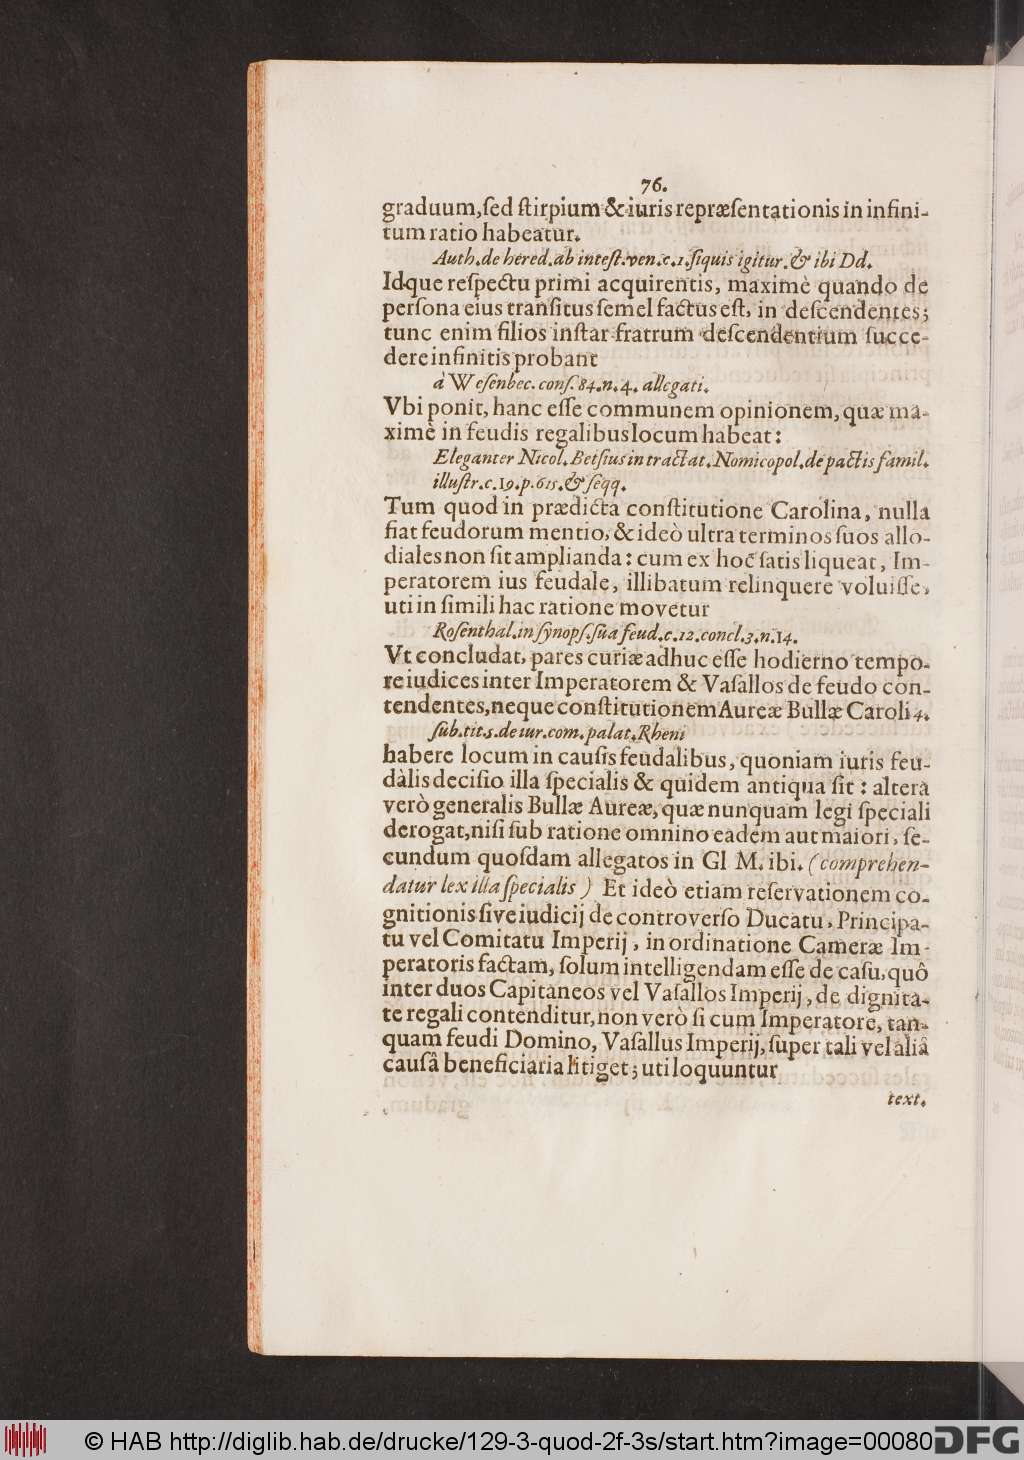 76.
graduum, ſed ſtirpium & iuris repræſentationis in infini-
tum ratio habeatur.
Auth. de hered. ab inteſt. ven. c. 1. ſi quis igitur. & ibi Dd.
Idque reſpectu primi acquirentis, maximè quando de
perſona eius tranſitus ſemel factus eſt, in deſcendentes;
tunc enim filios inſtar fratrum deſcendentium ſucce-
dere in finitis probant
à Weſenbec. conſ. 84. n. 4. allegati.
Vbi ponit, hanc eſſe communem opinionem, quæ ma-
ximè in feudis regalibus locum habeat:
Eleganter Nicol. Betſius in tractat. Nomicopol. de pactis famil.
illuſtr. c. 19. p. 615. & ſeqq.
Tum quod in prædicta conſtitutione Carolina, nulla
fiat feudorum mentio, & ideò ultra terminos ſuos allo-
diales non ſit amplianda: cum ex hoc ſatis liqueat, Im-
peratorem ius feudale, illibatum relinquere voluiſſe,
uti in ſimili hac ratione movetur
Roſenthal. in ſynopſ. ſua feud. c. 12. concl. 3. n. 14.
Vt concludat, pares curiæ adhuc eſſe hodierno tempo-
re iudices inter Imperatorem & Vaſallos de feudo con-
tendentes, neque conſtitutionem Aureæ Bullæ Caroli 4.
ſub. tit. 5. de iur. com. palat. Rheni
habere locum in cauſis feudalibus, quoniam iuris feu-
dalis deciſio illa ſpecialis & quidem antiqua ſit: altera
verò generalis Bullæ Aureæ, quæ nunquam legi ſpeciali
derogat, niſi ſub ratione omnino eadem aut maiori, ſe-
cundum quoſdam allegatos in Gl M. ibi. (comprehen-
datur lex illa ſpecialis) Et ideò etiam reſervationem co-
gnitionis ſive iudicij de controverſo Ducatu, Principa-
tu vel Comitatu Imperij, in ordinatione Cameræ Im-
peratoris factam, ſolum intelligendam eſſe de caſu, quô
inter duos Capitaneos vel Vaſallos Imperij, de dignita-
te regali contenditur, non verò ſi cum Imperatore, tan-
quam feudi Domino, Vaſallus Imperij, ſuper tali vel aliâ
cauſâ beneficiaria litiget; uti loquuntur
text.
© HAB http://diglib.hab.de/drucke/129-3-quod-2f-3s/start.htm?image=00080
DFG